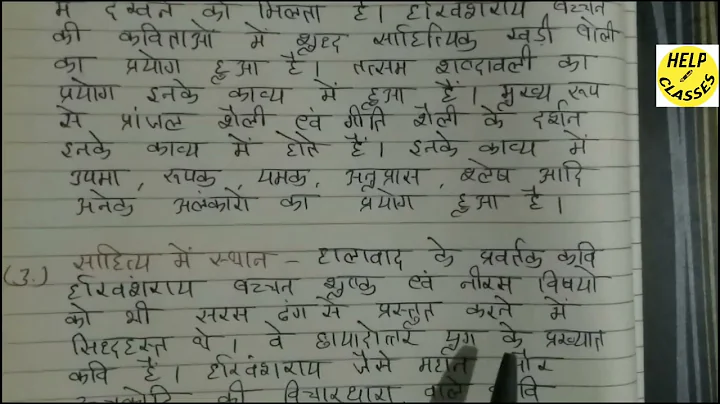 में देखने को मिलता है। हरिवंशराय बच्चन
की कविताओं में शुध्द साहित्यिक खड़ी बोली
का प्रयोग हुआ है। तत्सम शब्दावली का
प्रयोग इनके काव्य में हुआ हैं। मुख्य रूप
से प्रांजल शैली एवं गीति शैली के दर्शन
इनके काव्य में होते हैं। इनके काव्य में
उपमा, रूपक, यमक, अनुप्रास, श्लेष आदि
अनेक अलंकारों का प्रयोग हुआ है।
(3.) साहित्य में स्थान - हालावाद के प्रवर्तक कवि
हरिवंशराय बच्चन शुष्क एवं नीरस विषयों
को भी सरस ढंग से प्रस्तुत करने में
सिध्दहस्त थे। वे छायादोत्तर युग के प्रख्यात
कवि हैं। हरिवंशराय जैसे महान और
उच्चकोटि की विचारधारा वाले कवि
HELP
CLASSES